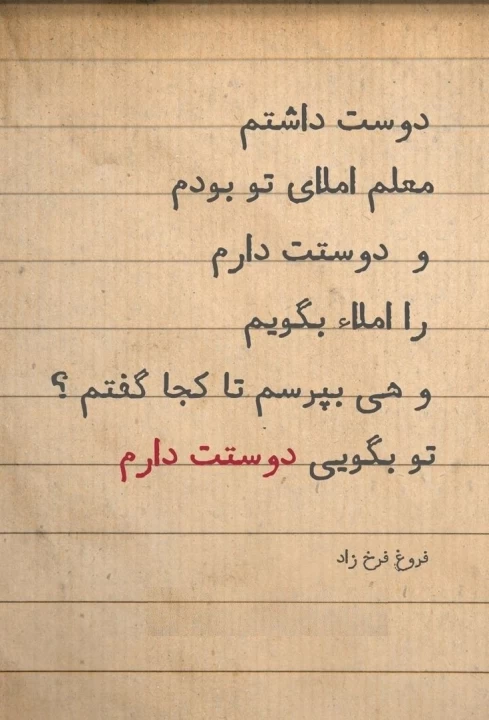 دوست داشتم
معلم املای تو بودم
و دوستت دارم
را املاء بگویم
و هی بپرسم تا کجا گفتم ؟
تو بگویی دوستت دارم
فروغ فرخ زاد